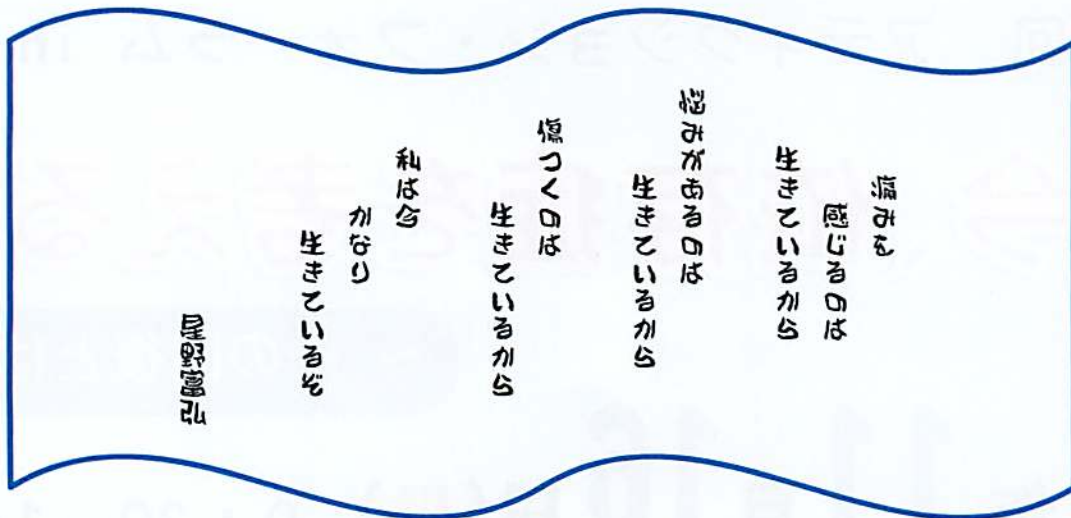 痛みを
感じるのは
生きているから
悩みがあるのは
生きているから
傷つくのは
生きているから
私は今
かなり
生きているぞ
星野富弘